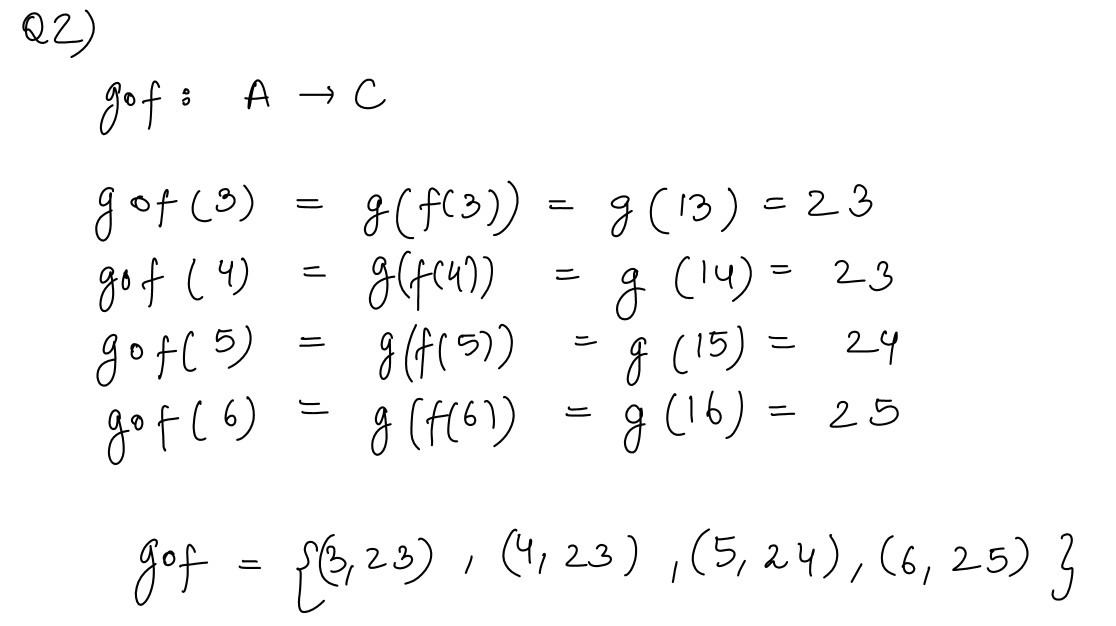 Q2)
gof : A → C
gof(3) = g(f(3)) = g(13) = 23
gof(4) = g(f(4)) = g(14) = 23
gof(5) = g(f(5)) = g(15) = 24
gof(6) = g(f(6)) = g(16) = 25
gof = {(3,23), (4,23), (5,24), (6,25)}